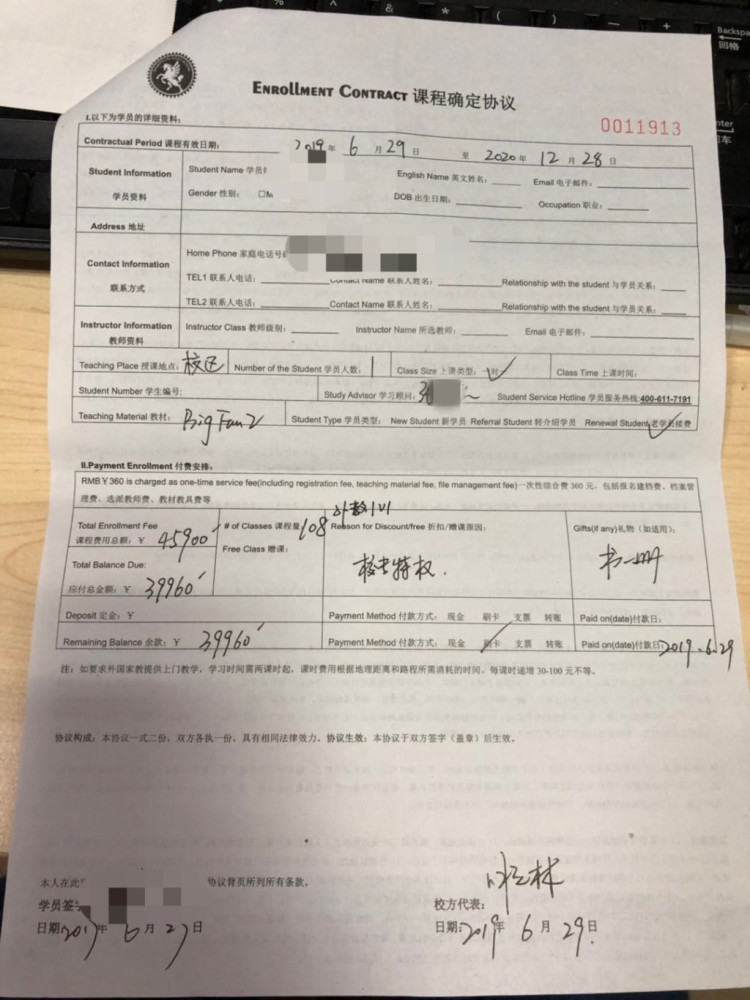 Backspa
回格
nter
回车
ENROLLMENT CONTRACT 课程确定协议
0011913
I.以下为学员的详细资料:
Contractual Period 课程有效日期: 2019 年 6 月 29 日 至 2020 年 12 月 28 日
Student Information
学员资料
Student Name 学员
English Name 英文姓名:
Email 电子邮件:
Gender 性别: □M
DOB 出生日期:
Occupation 职业:
Address 地址
Contact Information
联系方式
Home Phone 家庭电话号
TEL1 联系人电话: Contact Name 联系人姓名: Relationship with the student 与学员关系:
TEL2 联系人电话: Contact Name 联系人姓名: Relationship with the student 与学员关系:
Instructor Information
教师资料
Instructor Class 教师级别: Instructor Name 所选教师: Email 电子邮件:
Teaching Place 授课地点: 校区 Number of the Student 学员人数: 1 Class Size 上课类型: 一对 Class Time 上课时间:
Student Number 学生编号: Study Advisor 学习顾问: Student Service Hotline 学员服务热线:400-611-7191
Teaching Material 教材: Big Fun 2 Student Type 学员类型: New Student 新学员 Referral Student 转介绍学员 Renewal Student 老学员续费
II.Payment Enrollment 付费安排:
RMB￥360 is charged as one-time service fee(including registration fee, teaching material fee, file management fee)一次性综合费 360 元, 包括报名建档费、档案管
理费、选派教师费、教材教具费等
外教1V1
Total Enrollment Fee
课程费用总额: ￥ 45900
# of Classes 课程量: 108
Free Class 赠课:
Reason for Discount/free 折扣/赠课原因:
校长特权.
Gifts(if any)礼物 (如适用):
书一册
Total Balance Due:
应付总金额: ￥ 39960
Deposit 定金: ￥ Payment Method 付款方式: 现金 刷卡 支票 转账 Paid on(date)付款日:
Remaining Balance 余款: ￥ 39960 Payment Method 付款方式: 现金 刷卡 支票 转账 Paid on(date)付款日: 2019.6.29
注: 如要求外国家教提供上门教学, 学习时间需两课时起, 课时费用根据地理距离和路程所需消耗的时间, 每课时递增 30-100 元不等。
协议构成: 本协议一式二份, 双方各执一份, 具有相同法律效力。协议生效: 本协议于双方签字 (盖章) 后生效。
本人在此 协议背页所列所有条款。
学员签
校方代表:
日期: 2019 年 6 月 29 日
日期: 2019 年 6 月 29 日